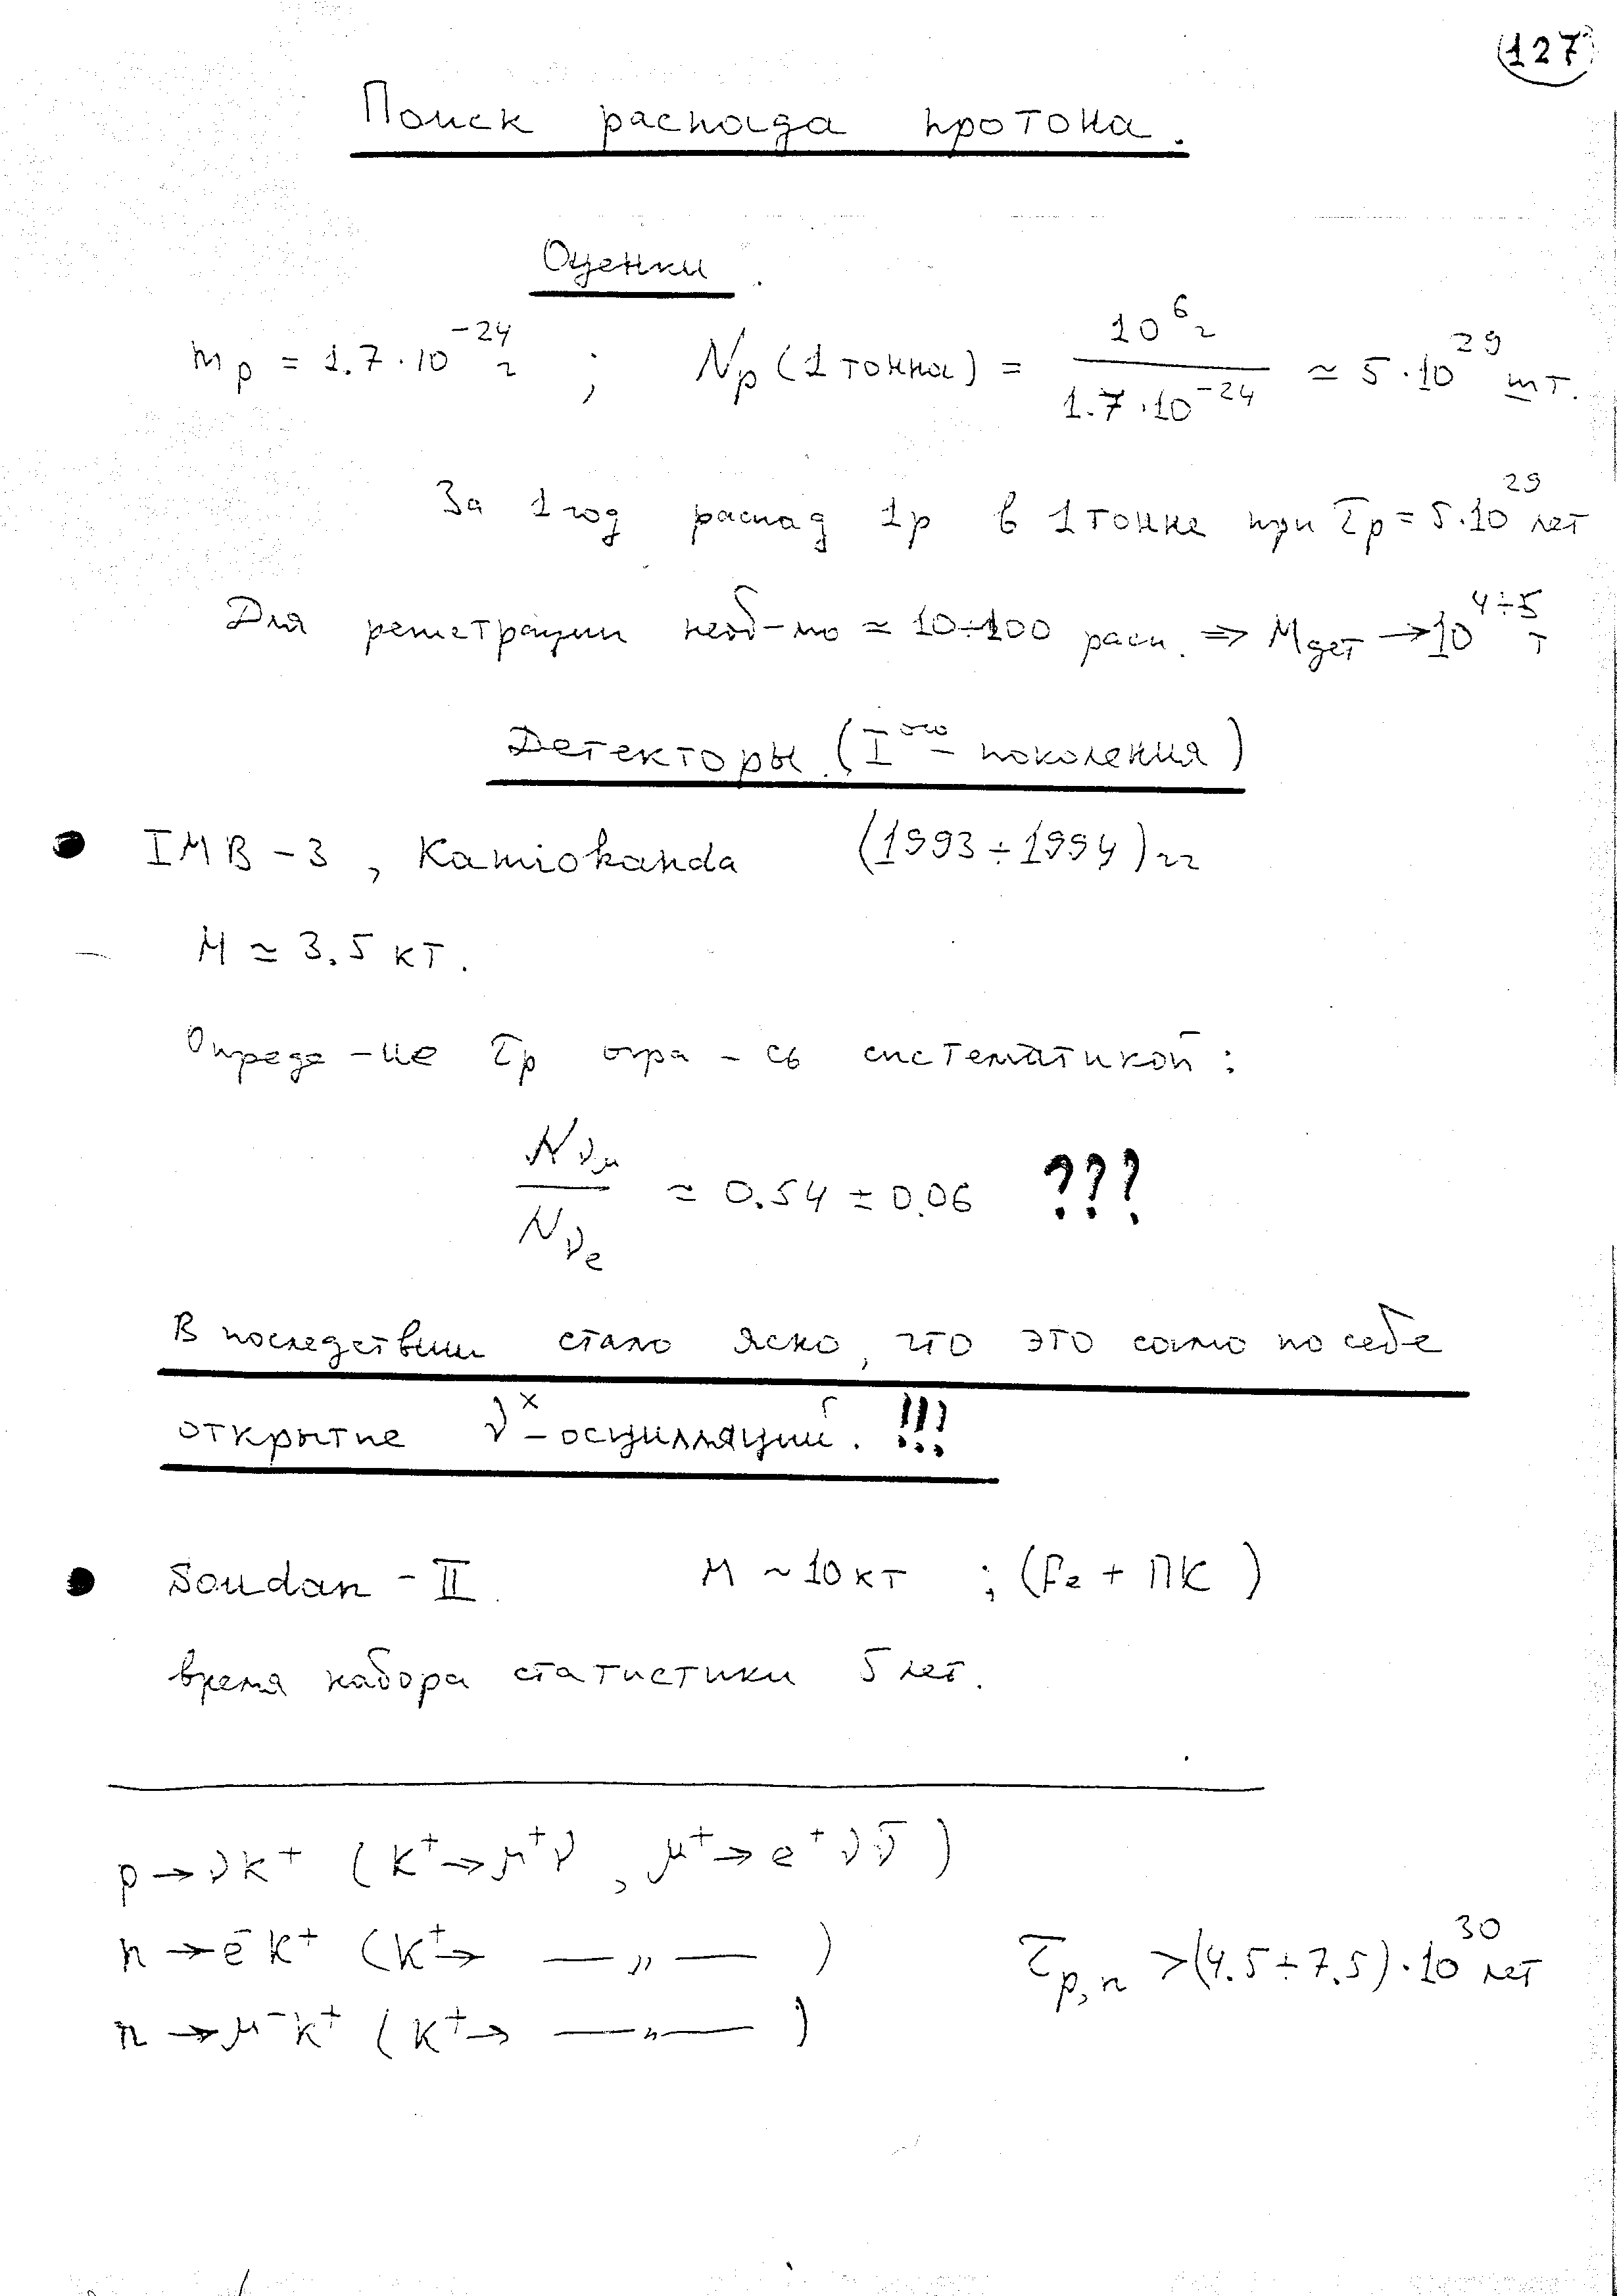 127
Поиск распада протона.
Оценки.
m_p = 1.7·10^-24 г ; N_p (1 тонна) = 10^6 г / 1.7·10^-24 ≃ 5·10^29 шт.
За 1 год распад 1p в 1 тонне при τ_p = 5·10^29 лет
Для регистрации необ-мо ≃ 10÷100 расп. ⇒ M_дет → 10^4÷5 т
Детекторы (I^ого - поколения)
• IMB-3, Kamiokanda (1993÷1994) гг
M ≃ 3.5 кТ.
Опреде-ие τ_p огра-сь систематикой:
N_νμ / N_νe ≃ 0.54 ± 0.06 ???
В последствии стало ясно, что это само по себе
открытие ν^x-осцилляций. !!!
• Soudan - II. M ~ 10 кТ ; (Fe + ПК)
время набора статистики 5 лет.
p → νK⁺ (K⁺ → μ⁺ν, μ⁺ → e⁺νν̄)
n → e⁻K⁺ (K⁺ → —„— )
τ_p,n > (4.5÷7.5)·10^30 лет
n → μ⁻K⁺ (K⁺ → —„— )